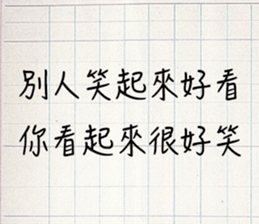 別人笑起來好看
你看起來很好笑